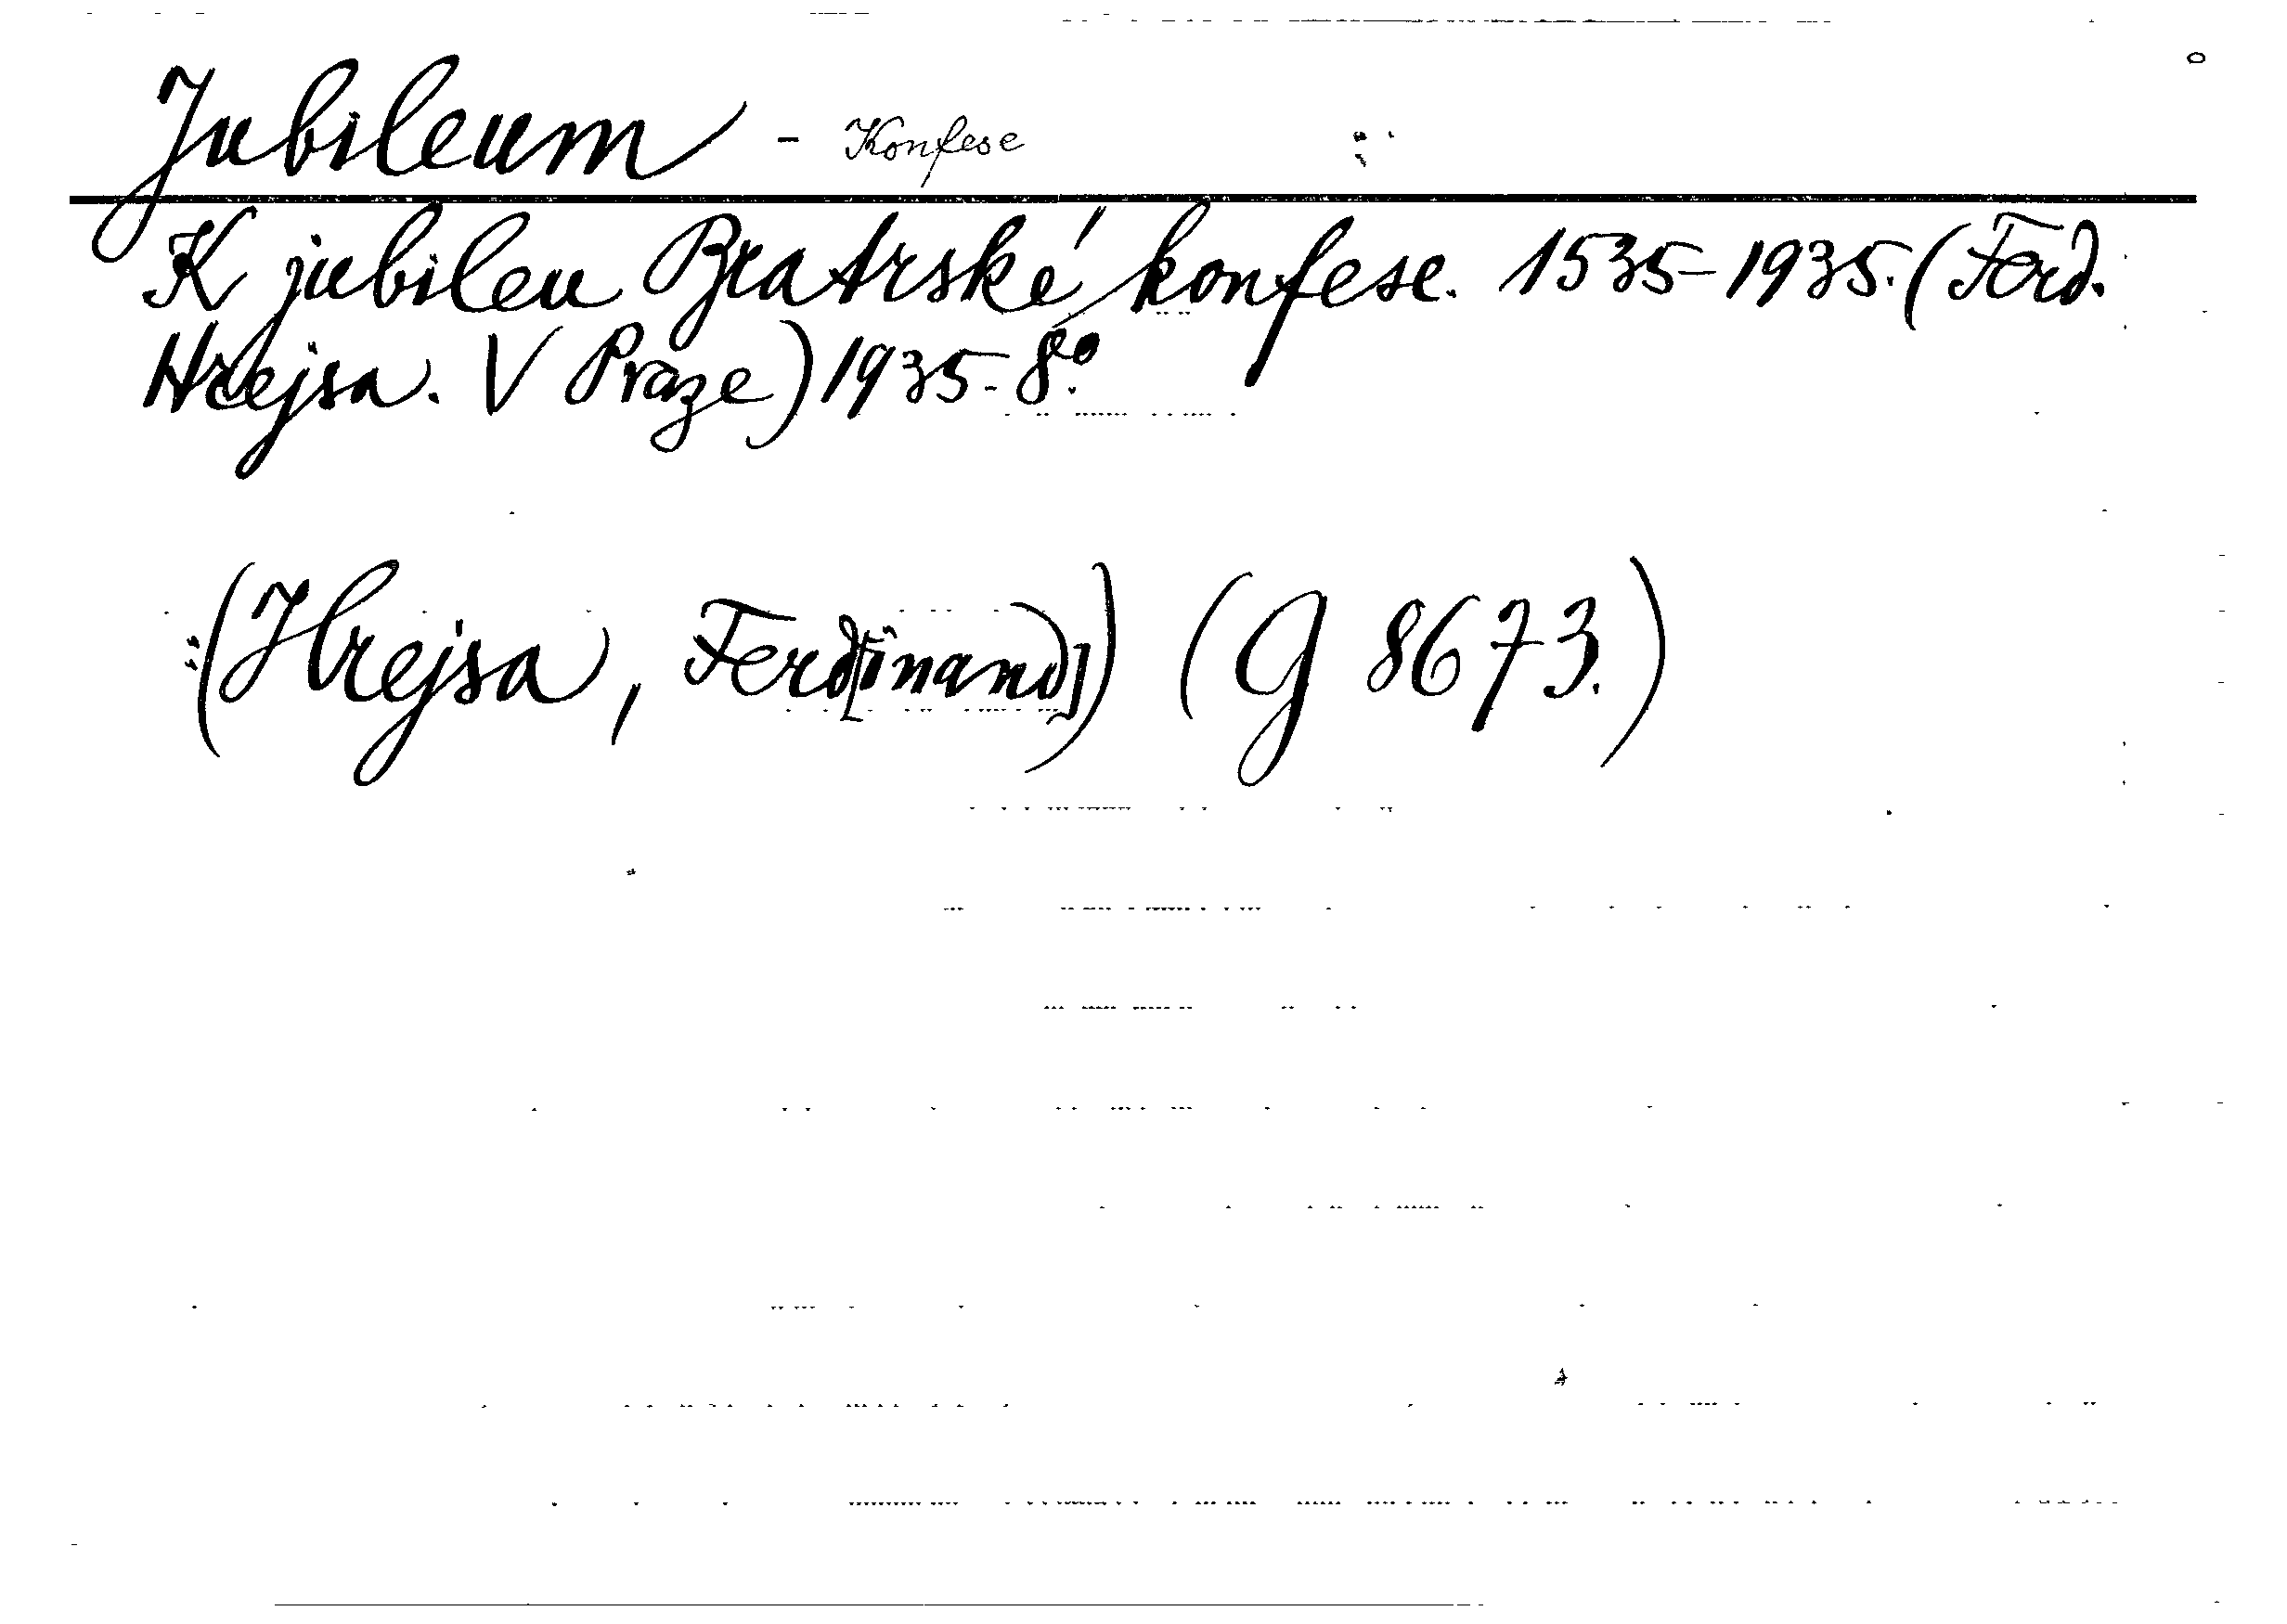 Jubileum - Konfese
K jubileu Bratrské konfese. 1535-1935. (Ferd.
Hrejsa. V Praze) 1935-8°.
(Hrejsa, Ferd[inand]) (G 8673.)